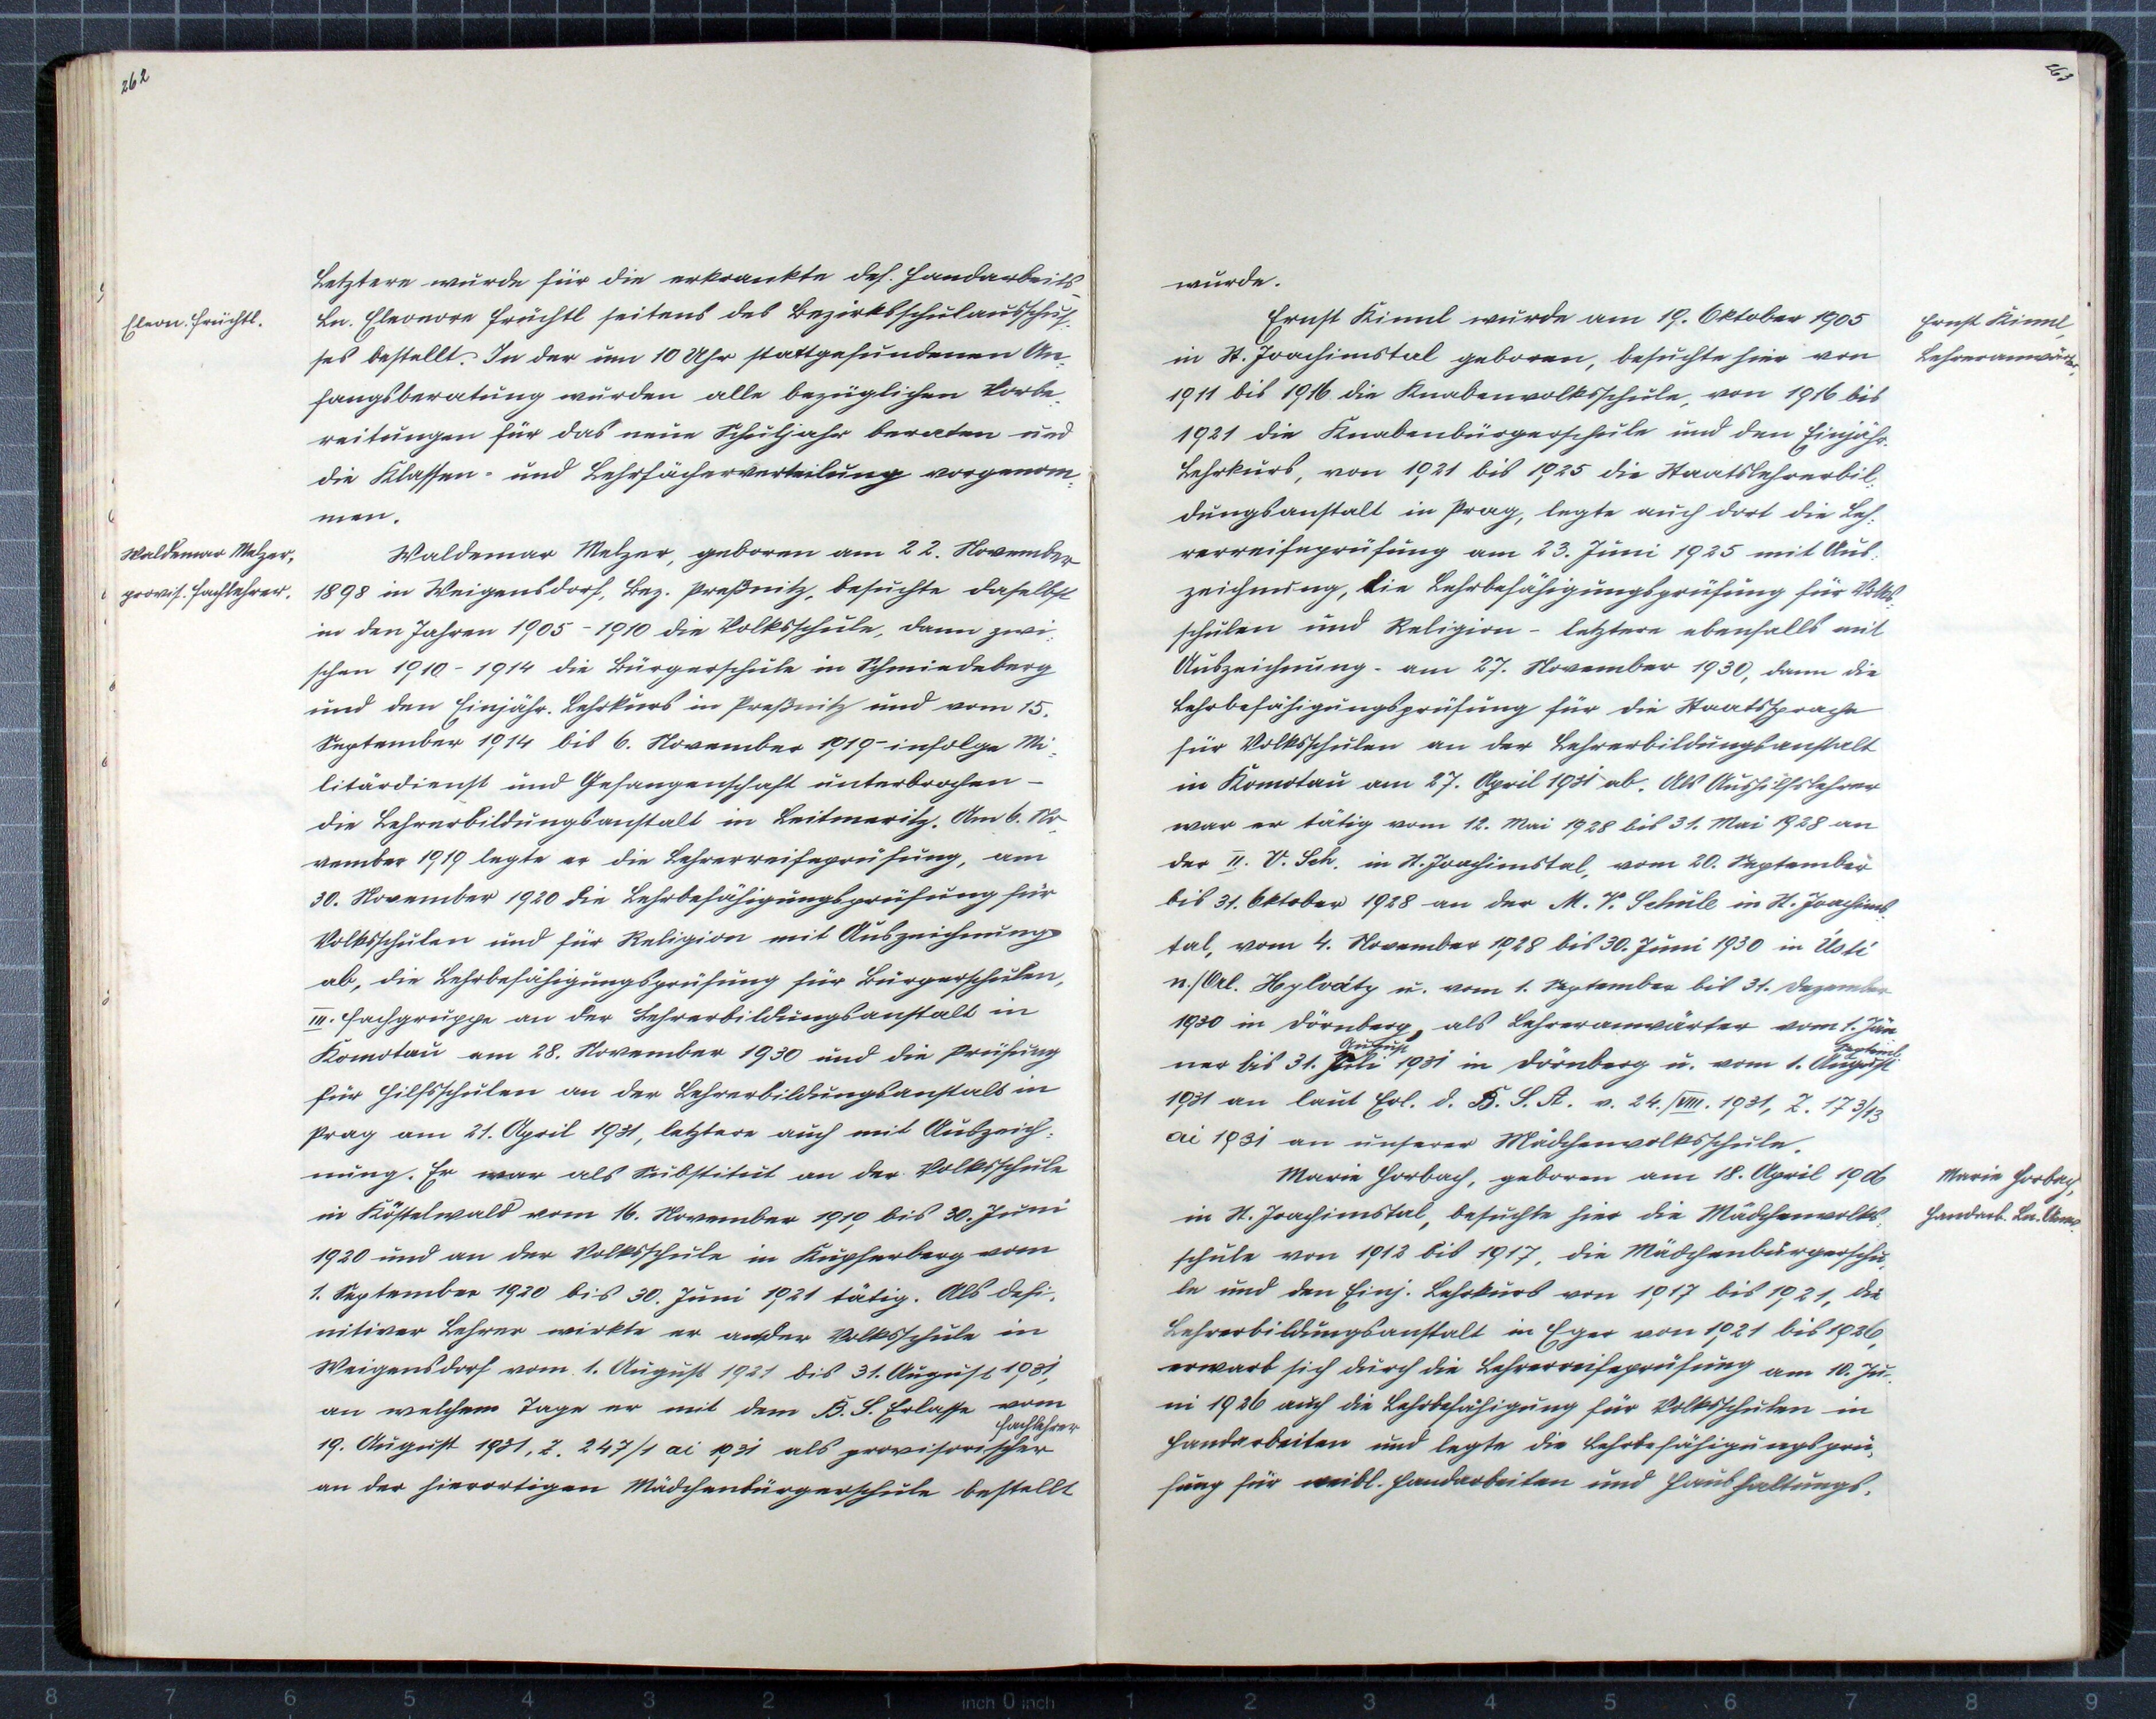 262
Letztere wurde für die erkrankte def. Handarbeits-
Eleon. Früchtl.
Ln. Eleonore Früchtl seitens des Bezirksschulausschus-
ses bestellt. In der um 10 Uhr stattgefundenen An-
fangsberatung wurden alle bezüglichen Vorbe-
reitungen für das neue Schuljahr beraten und
die Klassen- und Lehrfächerverteilung vorgenom-
men.
Waldemar Melzer,
provis. Fachlehrer.
Waldemar Melzer, geboren am 22. November
1898 in Weigensdorf, Bez. Preßnitz, besuchte daselbst
in den Jahren 1905 - 1910 die Volksschule, dann zwi-
schen 1910 - 1914 die Bürgerschule in Schmiedeberg
und den Einjähr. Lehrkurs in Preßnitz und vom 15.
September 1914 bis 6. November 1919 - infolge Mi-
litärdienst und Gefangenschaft unterbrochen -
die Lehrerbildungsanstalt in Leitmeritz. Am 6. No-
vember 1919 legte er die Lehrerreifeprüfung, am
30. November 1920 die Lehrbefähigungsprüfung für
Volksschulen und für Religion mit Auszeichnung
ab, die Lehrbefähigungsprüfung für Bürgerschulen,
III. Fachgruppe an der Lehrerbildungsanstalt in
Komotau am 28. November 1930 und die Prüfung
für Hilfsschulen an der Lehrerbildungsanstalt in
Prag am 21. April 1931, letztere auch mit Auszeich-
nung. Er war als Substitut an der Volksschule
in Köstelwald vom 16. November 1919 bis 30. Juni
1920 und an der Volksschule in Kupferberg vom
1. September 1920 bis 30. Juni 1921 tätig. Als defi-
nitiver Lehrer wirkte er an der Volksschule in
Weigensdorf vom 1. August 1921 bis 31. August 1931,
an welchem Tage er mit dem B. S. Erlasse vom
19. August 1931, Z. 247/1 ai 1931 als provisorischer Fachlehrer
an der hierortigen Mädchenbürgerschule bestellt
263
wurde.
Ernst Kinnl,
Lehreranwärter.
Ernst Kinnl wurde am 19. Oktober 1905
in St. Joachimstal geboren, besuchte hier von
1911 bis 1916 die Knabenvolksschule, von 1916 bis
1921 die Knabenbürgerschule und den Einjähr.
Lehrkurs, von 1921 bis 1925 die Staatslehrerbil-
dungsanstalt in Prag, legte auch dort die Leh-
rerreifeprüfung am 23. Juni 1925 mit Aus-
zeichnung, die Lehrbefähigungsprüfung für Volks-
schulen und Religion - letztere ebenfalls mit
Auszeichnung - am 27. November 1930, dann die
Lehrbefähigungsprüfung für die Staatssprache
für Volksschulen an der Lehrerbildungsanstalt
in Komotau am 27. April 1931 ab. Als Aushilfslehrer
war er tätig vom 12. Mai 1928 bis 31. Mai 1928 an
der II. V. Sch. in St. Joachimstal, vom 20. September
bis 31. Oktober 1928 an der M. V. Schule in St. Joachims-
tal, vom 4. November 1928 bis 30. Juni 1930 in Ústi
n./Orl. Hylváty u. vom 1. September bis 31. Dezember
1930 in Dörnberg, als Lehreranwärter vom 1. Jän-
ner bis 31. Juli August 1931 in Dörnberg u. vom 1. August Septemb.
1931 an laut Erl. d. B. S. A. v. 24./VIII. 1931, Z. 173/13
ai 1931 an unserer Mädchenvolksschule.
Marie Horbach,
Handarb. Ln.
Marie Horbach, geboren am 18. April 1906
in St. Joachimstal, besuchte hier die Mädchenvolks-
schule von 1912 bis 1917, die Mädchenbürgerschu-
le und den Einj. Lehrkurs von 1917 bis 1921, die
Lehrerbildungsanstalt in Eger von 1921 bis 1926,
erwarb sich durch die Lehrerreifeprüfung am 10. Ju-
ni 1926 auch die Lehrbefähigung für Volksschulen in
Handarbeiten und legte die Lehrbefähigungsprü-
fung für weibl. Handarbeiten und Haushaltungs-
8 7 6 5 4 3 2 1 inch 0 inch 1 2 3 4 5 6 7 8 9